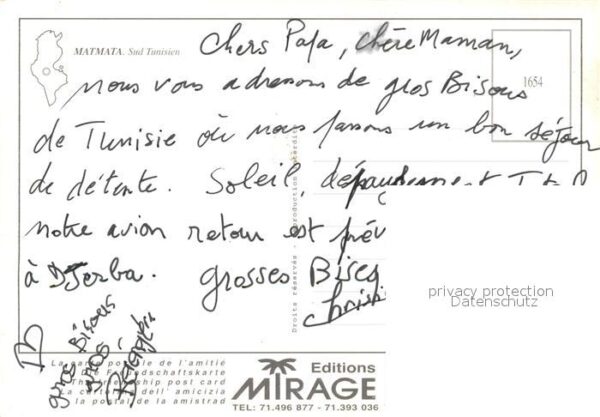 MATMATA. Sud Tunisien
Chers Papa, Chère Maman,
nous vous adressons de gros Bisous
1654
de Tunisie où nous passons un bon séjour
de détente. Soleil, dépaysement
notre avion retour est prév
à Djerba. grosses Bises
Christi
privacy protection
Datenschutz
gros Bisous
gros
Droits réservés - Reproduction interdite
La carte postale de l'amitié
Die Freundschaftskarte
The friendship post card
La cartolina dell'amicizia
la postal de la amistrad
Editions
MIRAGE
TEL: 71.496 877 - 71.393 036